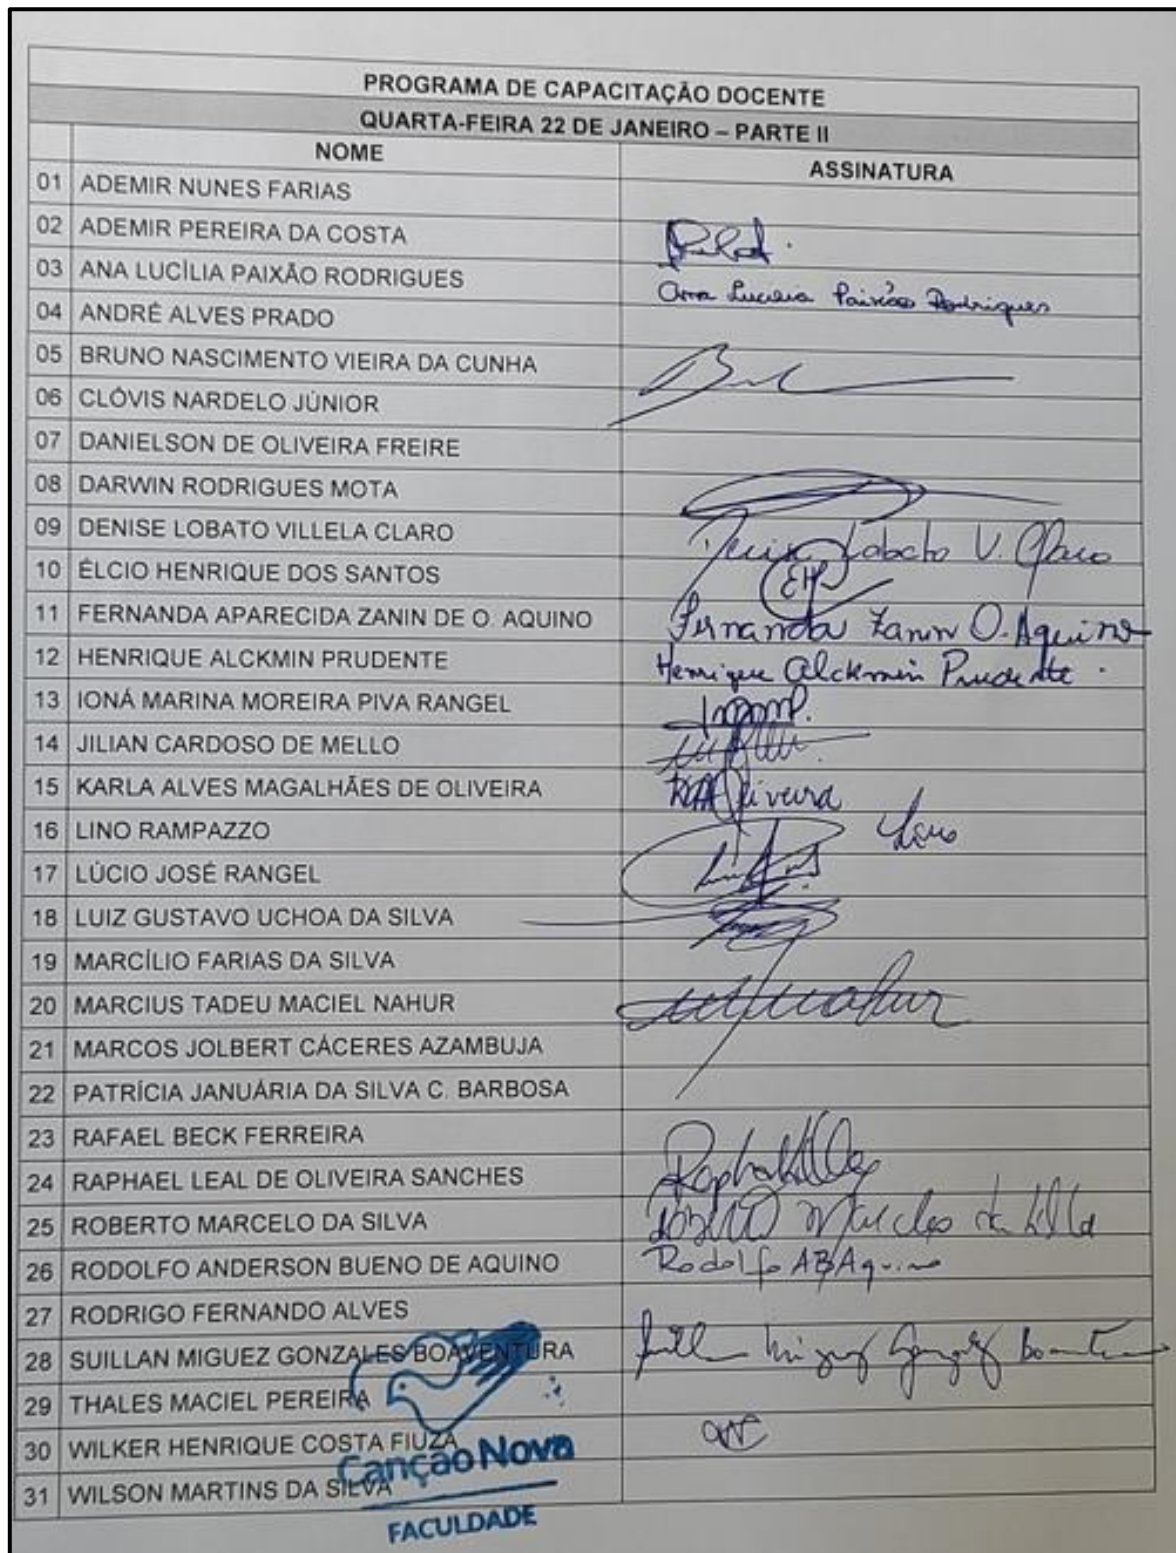 PROGRAMA DE CAPACITAÇÃO DOCENTE
QUARTA-FEIRA 22 DE JANEIRO – PARTE II
NOME ASSINATURA
01 ADEMIR NUNES FARIAS
02 ADEMIR PEREIRA DA COSTA
03 ANA LUCÍLIA PAIXÃO RODRIGUES Ana Lucilia Paixão Rodrigues
04 ANDRÉ ALVES PRADO
05 BRUNO NASCIMENTO VIEIRA DA CUNHA
06 CLÓVIS NARDELO JÚNIOR
07 DANIELSON DE OLIVEIRA FREIRE
08 DARWIN RODRIGUES MOTA
09 DENISE LOBATO VILLELA CLARO Denise Lobato V. Claro
10 ÉLCIO HENRIQUE DOS SANTOS EHS
11 FERNANDA APARECIDA ZANIN DE O. AQUINO Fernanda Zanin O. Aquino
12 HENRIQUE ALCKMIN PRUDENTE Henrique Alckmin Prudente
13 IONÁ MARINA MOREIRA PIVA RANGEL
14 JILIAN CARDOSO DE MELLO
15 KARLA ALVES MAGALHÃES DE OLIVEIRA KAMOliveira
16 LINO RAMPAZZO Lino
17 LÚCIO JOSÉ RANGEL
18 LUIZ GUSTAVO UCHOA DA SILVA
19 MARCÍLIO FARIAS DA SILVA
20 MARCIUS TADEU MACIEL NAHUR
21 MARCOS JOLBERT CÁCERES AZAMBUJA
22 PATRÍCIA JANUÁRIA DA SILVA C. BARBOSA
23 RAFAEL BECK FERREIRA
24 RAPHAEL LEAL DE OLIVEIRA SANCHES
25 ROBERTO MARCELO DA SILVA Roberto Marcelo da Silva
26 RODOLFO ANDERSON BUENO DE AQUINO Rodolfo ABAquino
27 RODRIGO FERNANDO ALVES
28 SUILLAN MIGUEZ GONZALES BOAVENTURA Suillan Miguez Gonzales Boaventura
29 THALES MACIEL PEREIRA
30 WILKER HENRIQUE COSTA FIUZA
31 WILSON MARTINS DA SILVA
Canção Nova
FACULDADE